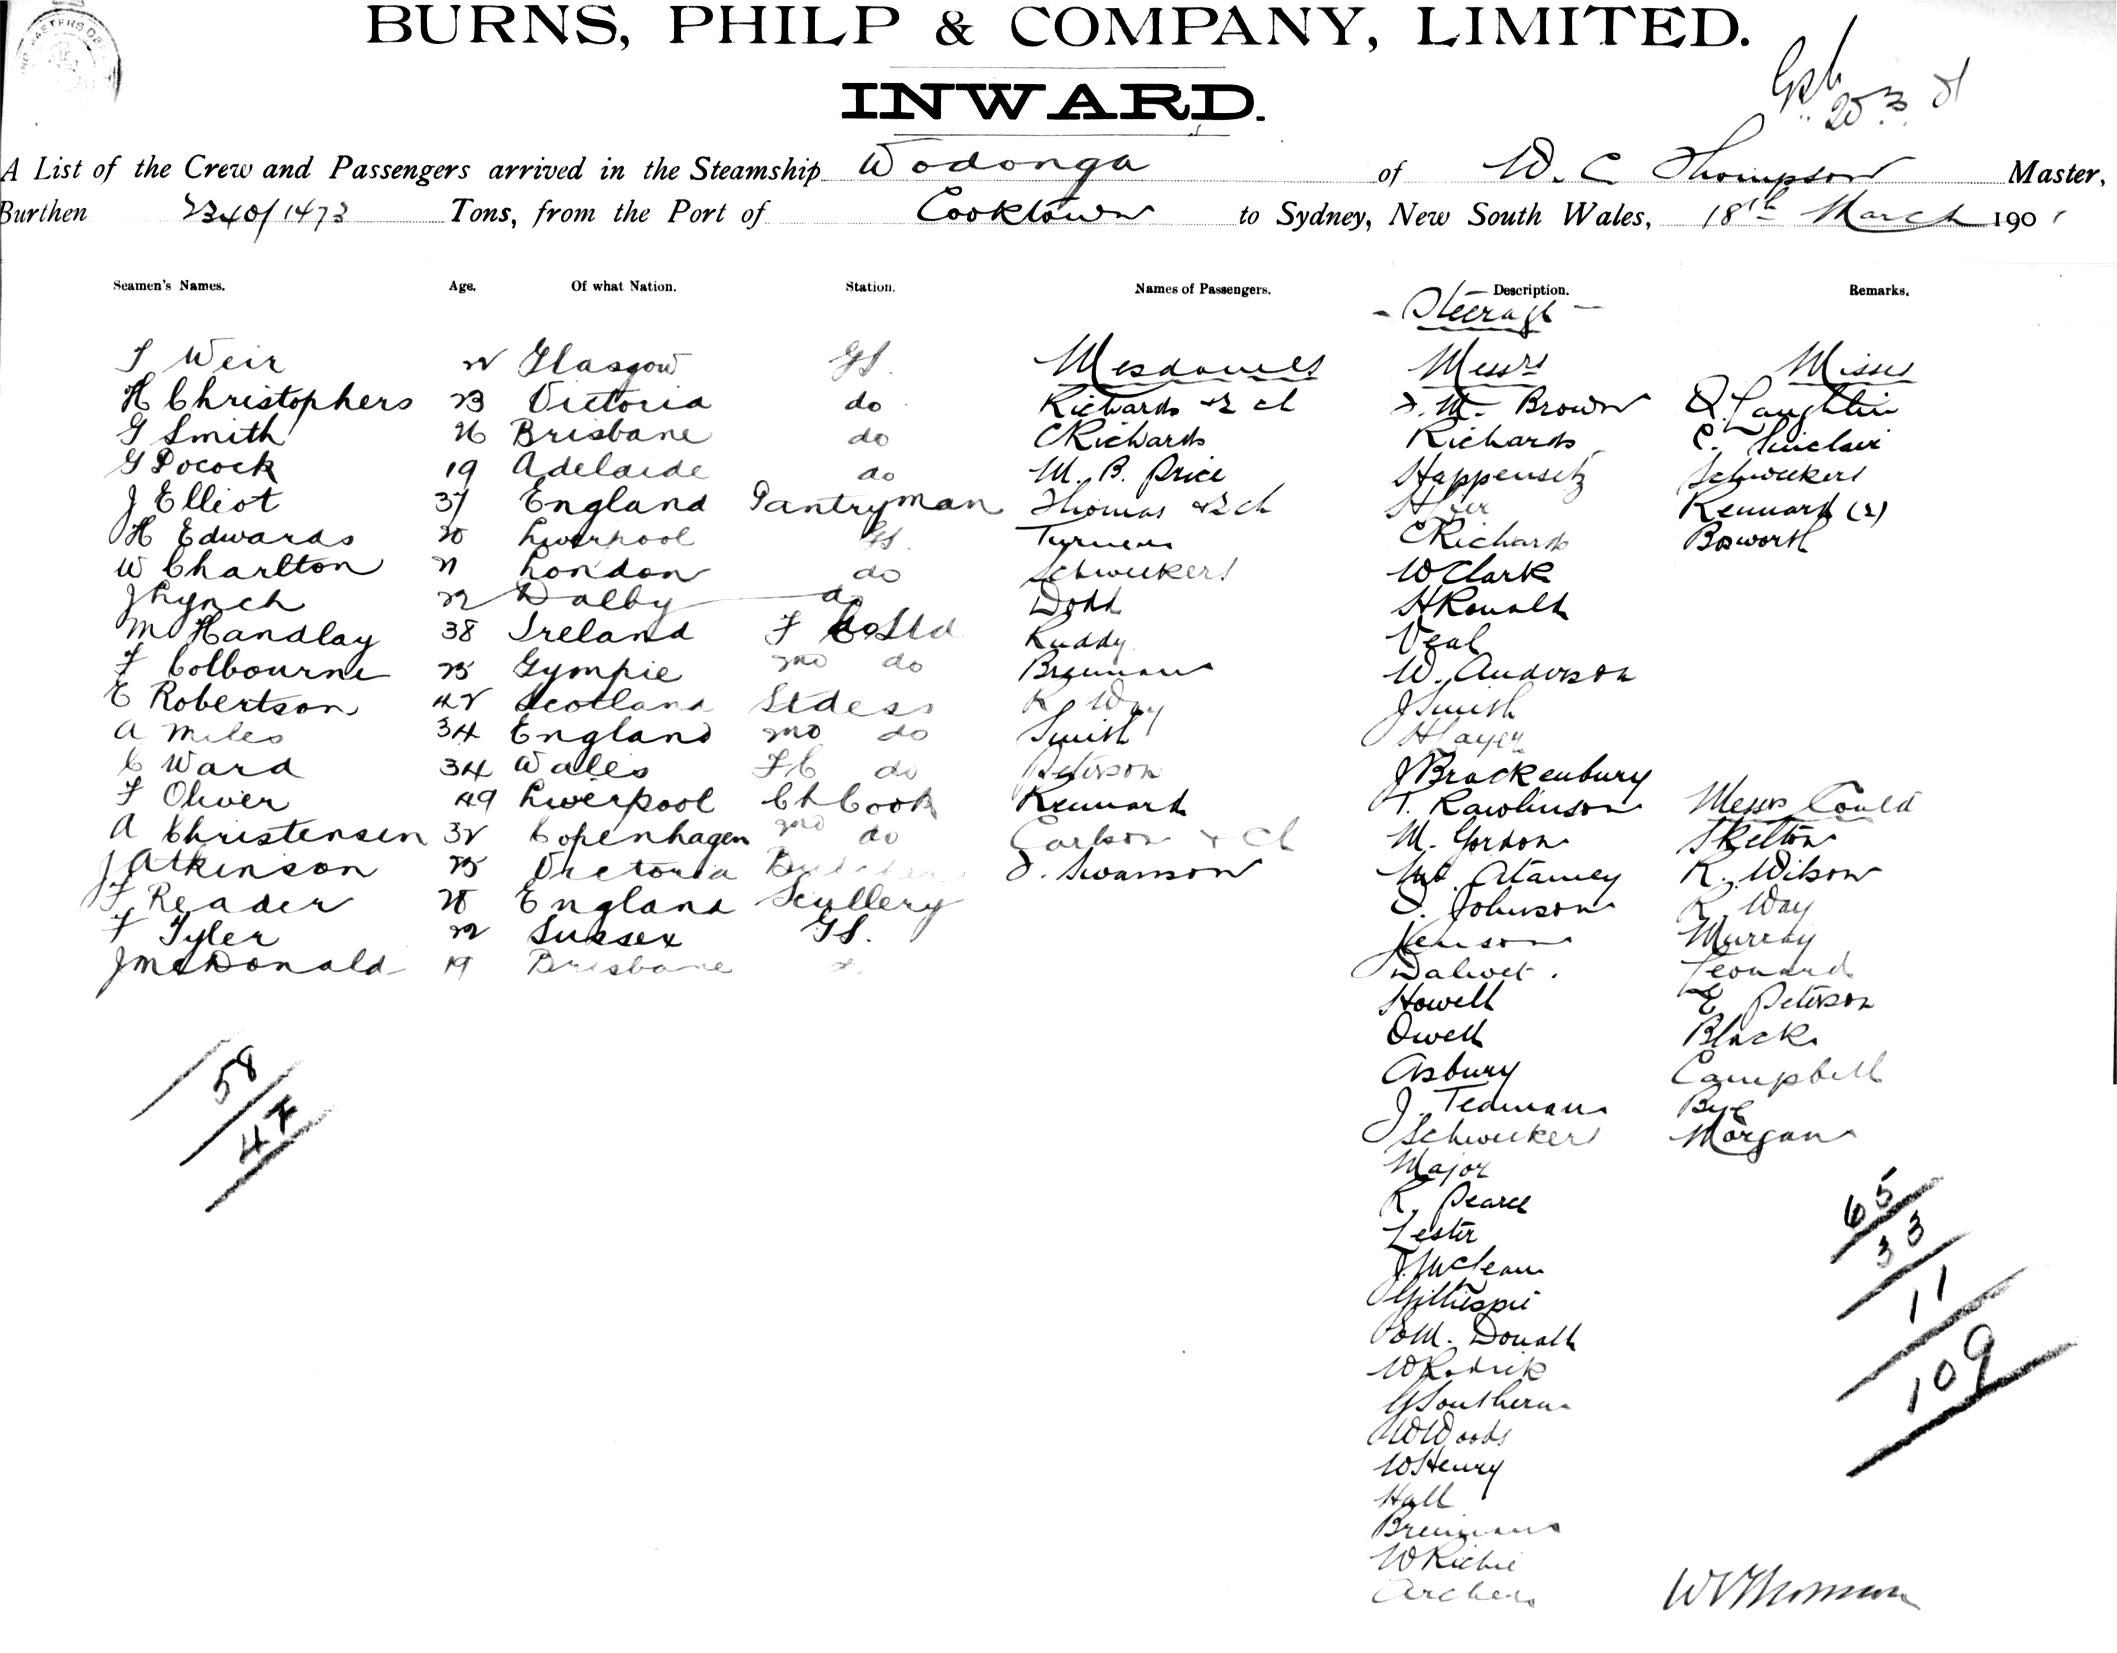 BURNS, PHILP & COMPANY, LIMITED.
INWARD.
A List of the Crew and Passengers arrived in the Steamship Wodonga of W. C Thompson Master,
Burthen 2340/1473 Tons, from the Port of Cooktown to Sydney, New South Wales, 18th March 1901
Seamen's Names. Age. Of what Nation. Station. Names of Passengers. Description. Remarks.
- Steerage -
Weir 22 Glasgow GS. Mesdames Messrs Misses
H Christophers 23 Victoria do Richards & 2 ch M. Brown Laughlin
G Smith 26 Brisbane do C Richards Richards C. Sinclair
G Pocock 19 Adelaide do M. B. Price Happensitz Schweikert
J Elliot 37 England Pantryman Thomas & 2 ch Kennark (2)
H Edwards 20 Liverpool GS. Turner C Richards Bosworth
W Charlton 21 London do Schweikert W Clark
J Lynch 22 Dalby do Dodd H Ronald
M Handlay 38 Ireland F C Std Ruddy Veal
F Colbourne 25 Gympie do Brennan W. Anderson
E Robertson 42 Scotland Stdess R Way J Smith
A Miles 34 England do Smith H Layer
C Ward 34 Wales F C do Peterson J Brackenbury
F Oliver 49 Liverpool Ch Cook Kennark T. Rawlinson Messrs Contd
A Christensen 32 Copenhagen do Carlson & Ch M. Gordon Skelton
J Atkinson 25 Victoria Swanson R. Wilson
F Reader 20 England Scullery Johnson R. Way
F Tyler 22 Sussex GS. Jenson Murray
J McDonald 19 Brisbane Leonard
Howell E Peterson
Owell Black
Asbury Campbell
J. Tedman Bye
Schweikert Morgan
58
47
Major
R. Pearce
Lester
J. McLean
Gillespie
M. Donald
W Rodrick
G Southern
W Woods
W Henry
Hall
Brennan
W Richie
Archer
65
33
11
109